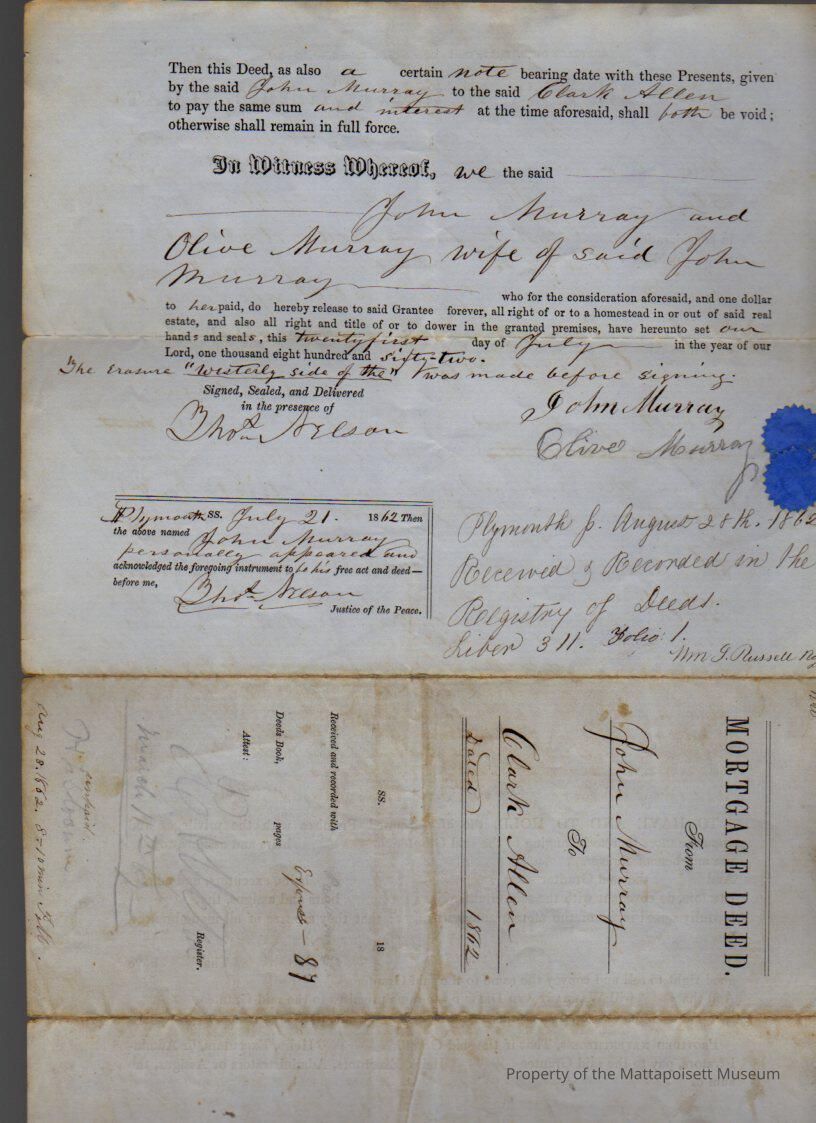 Then this Deed, as also a certain note bearing date with these Presents, given
by the said John Murray to the said Clark Allen
to pay the same sum and interest at the time aforesaid, shall both be void;
otherwise shall remain in full force.
In Witness Whereof, we the said
John Murray and
Olive Murray wife of said John
Murray
who for the consideration aforesaid, and one dollar
to her paid, do hereby release to said Grantee forever, all right of or to a homestead in or out of said real
estate, and also all right and title of or to dower in the granted premises, have hereunto set our
hands and seals, this twentyfirst day of July in the year of our
Lord, one thousand eight hundred and sixty-two.
The erasure "Westerly side of the" was made before signing.
Signed, Sealed, and Delivered
in the presence of
Thos. Nelson
John Murray
Olive Murray
Plymouth SS. July 21. 1862 Then
the above named John Murray
personally appeared and
acknowledged the foregoing instrument to be his free act and deed—
before me,
Thos. Nelson
Justice of the Peace.
Plymouth ss. August 28th. 1862
Received & Recorded in the
Registry of Deeds.
Liber 311. Folio 1.
Wm S. Russell Reg
MORTGAGE DEED.
From
John Murray
To
Clark Allen
Dated 1862
SS. 18
Received and recorded with
Deeds Book, pages
Attest:
Register.
87
March
Aug 28. 1862. 8-10 min
Property of the Mattapoisett Museum